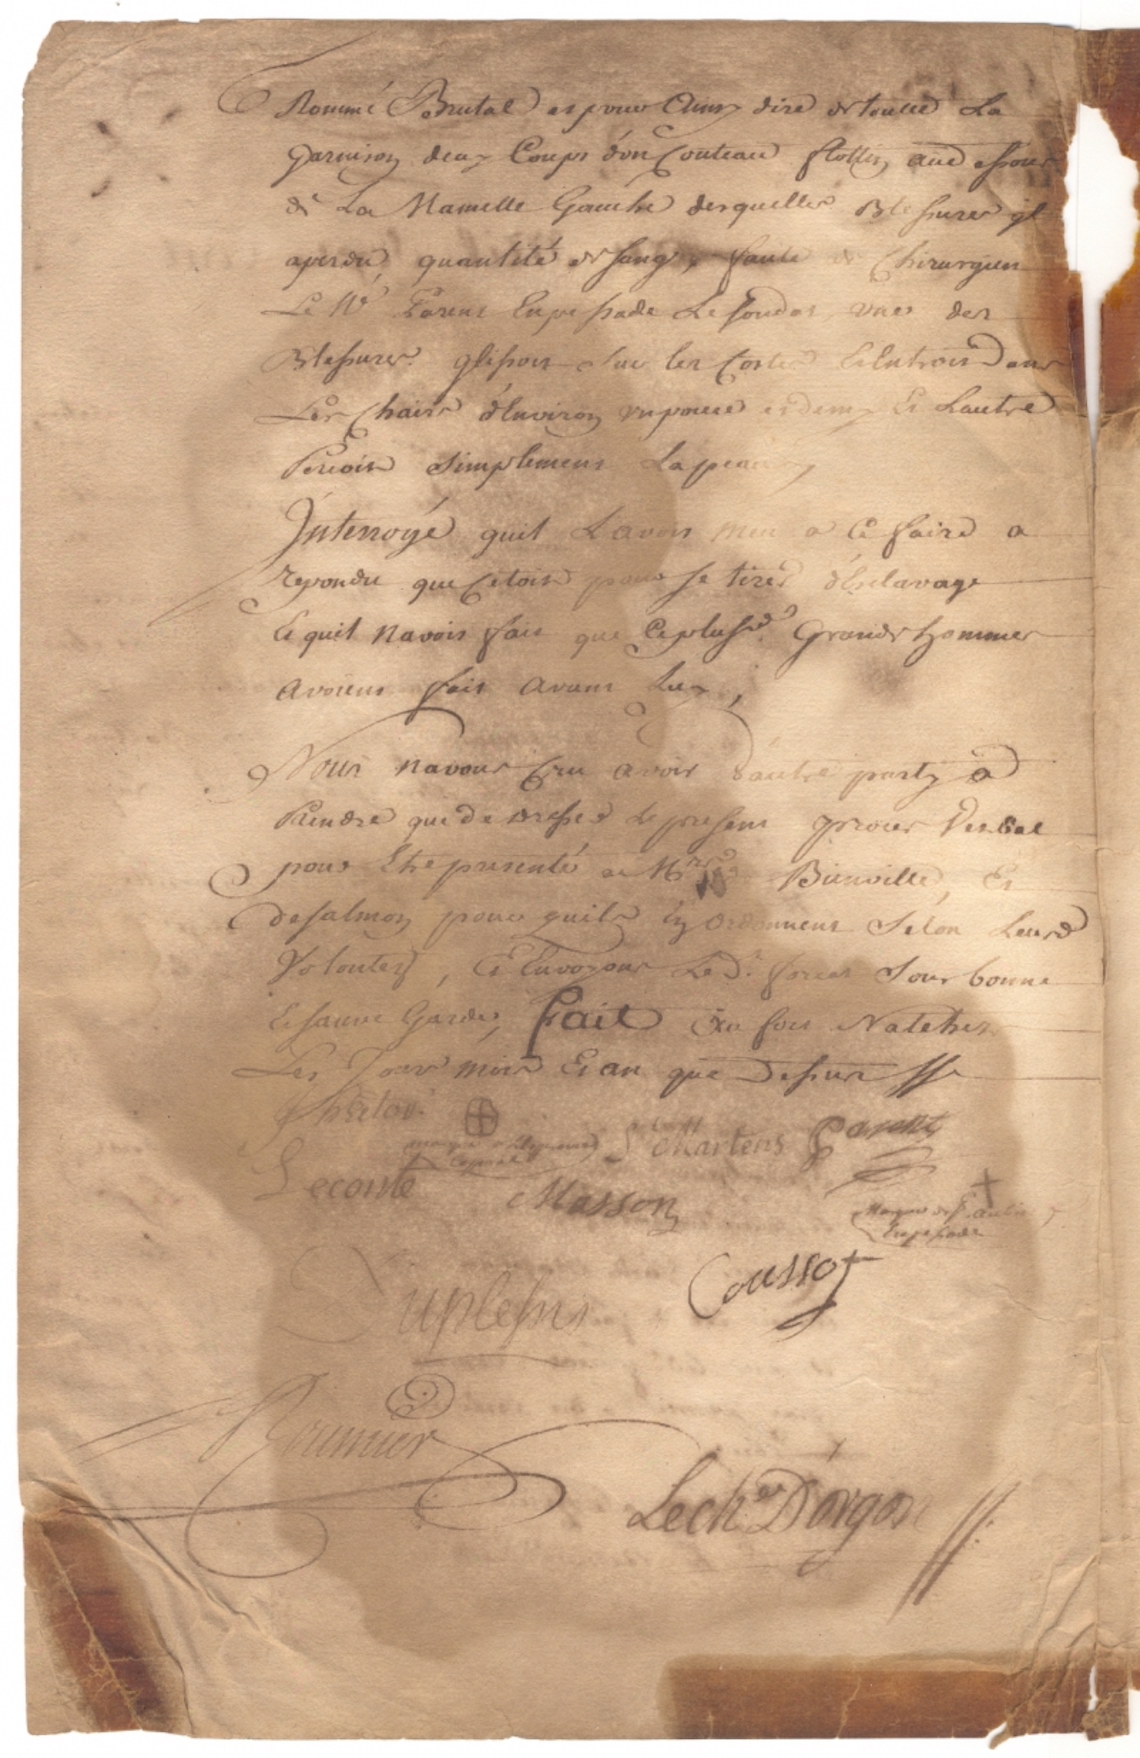 Nommé Brutal et pour Ainsy dire de toutte La
garnison deux Coups d'on Couteau flottin, aud essous
de La Mamelle Gauche desquelles Blessures jl
aperdu quantité de sang, faute de Chirurgien
Le Nd Parent Enpessade Le sonda, une des
Blessures glissoit Sur les Costes Et Entroit Dans
Les Chairs d'Environ un pouce et demy Et Lautre
Percoit simplement La peau
Jnterrogé quil Lavoit meu a Ce faire a
repondu que Cetoit pour se tirer d'Esclavage
Et quil Navoit fait que Ceplusrs Grands hommes
avoient fait avant Luy,
Nous navons Cru avoir dautre party a
Prendre que de dresser Le present procès Verbal
pour Etre presenté a Mrs de Bienville, Et
de salmon pour quils En Ordonnent Selon Leurs
Volontez, Et Envoyons Led. forcat Sous bonne
Et sauve Garde, fait Au fort Natchez
Les Jour mois Et an que Dessus
marque
Caporal
St Martens Parent
Leconte Masson
Marque de St aubin
Enpessade
Duplessis
Coussot
Lechr D'orgon